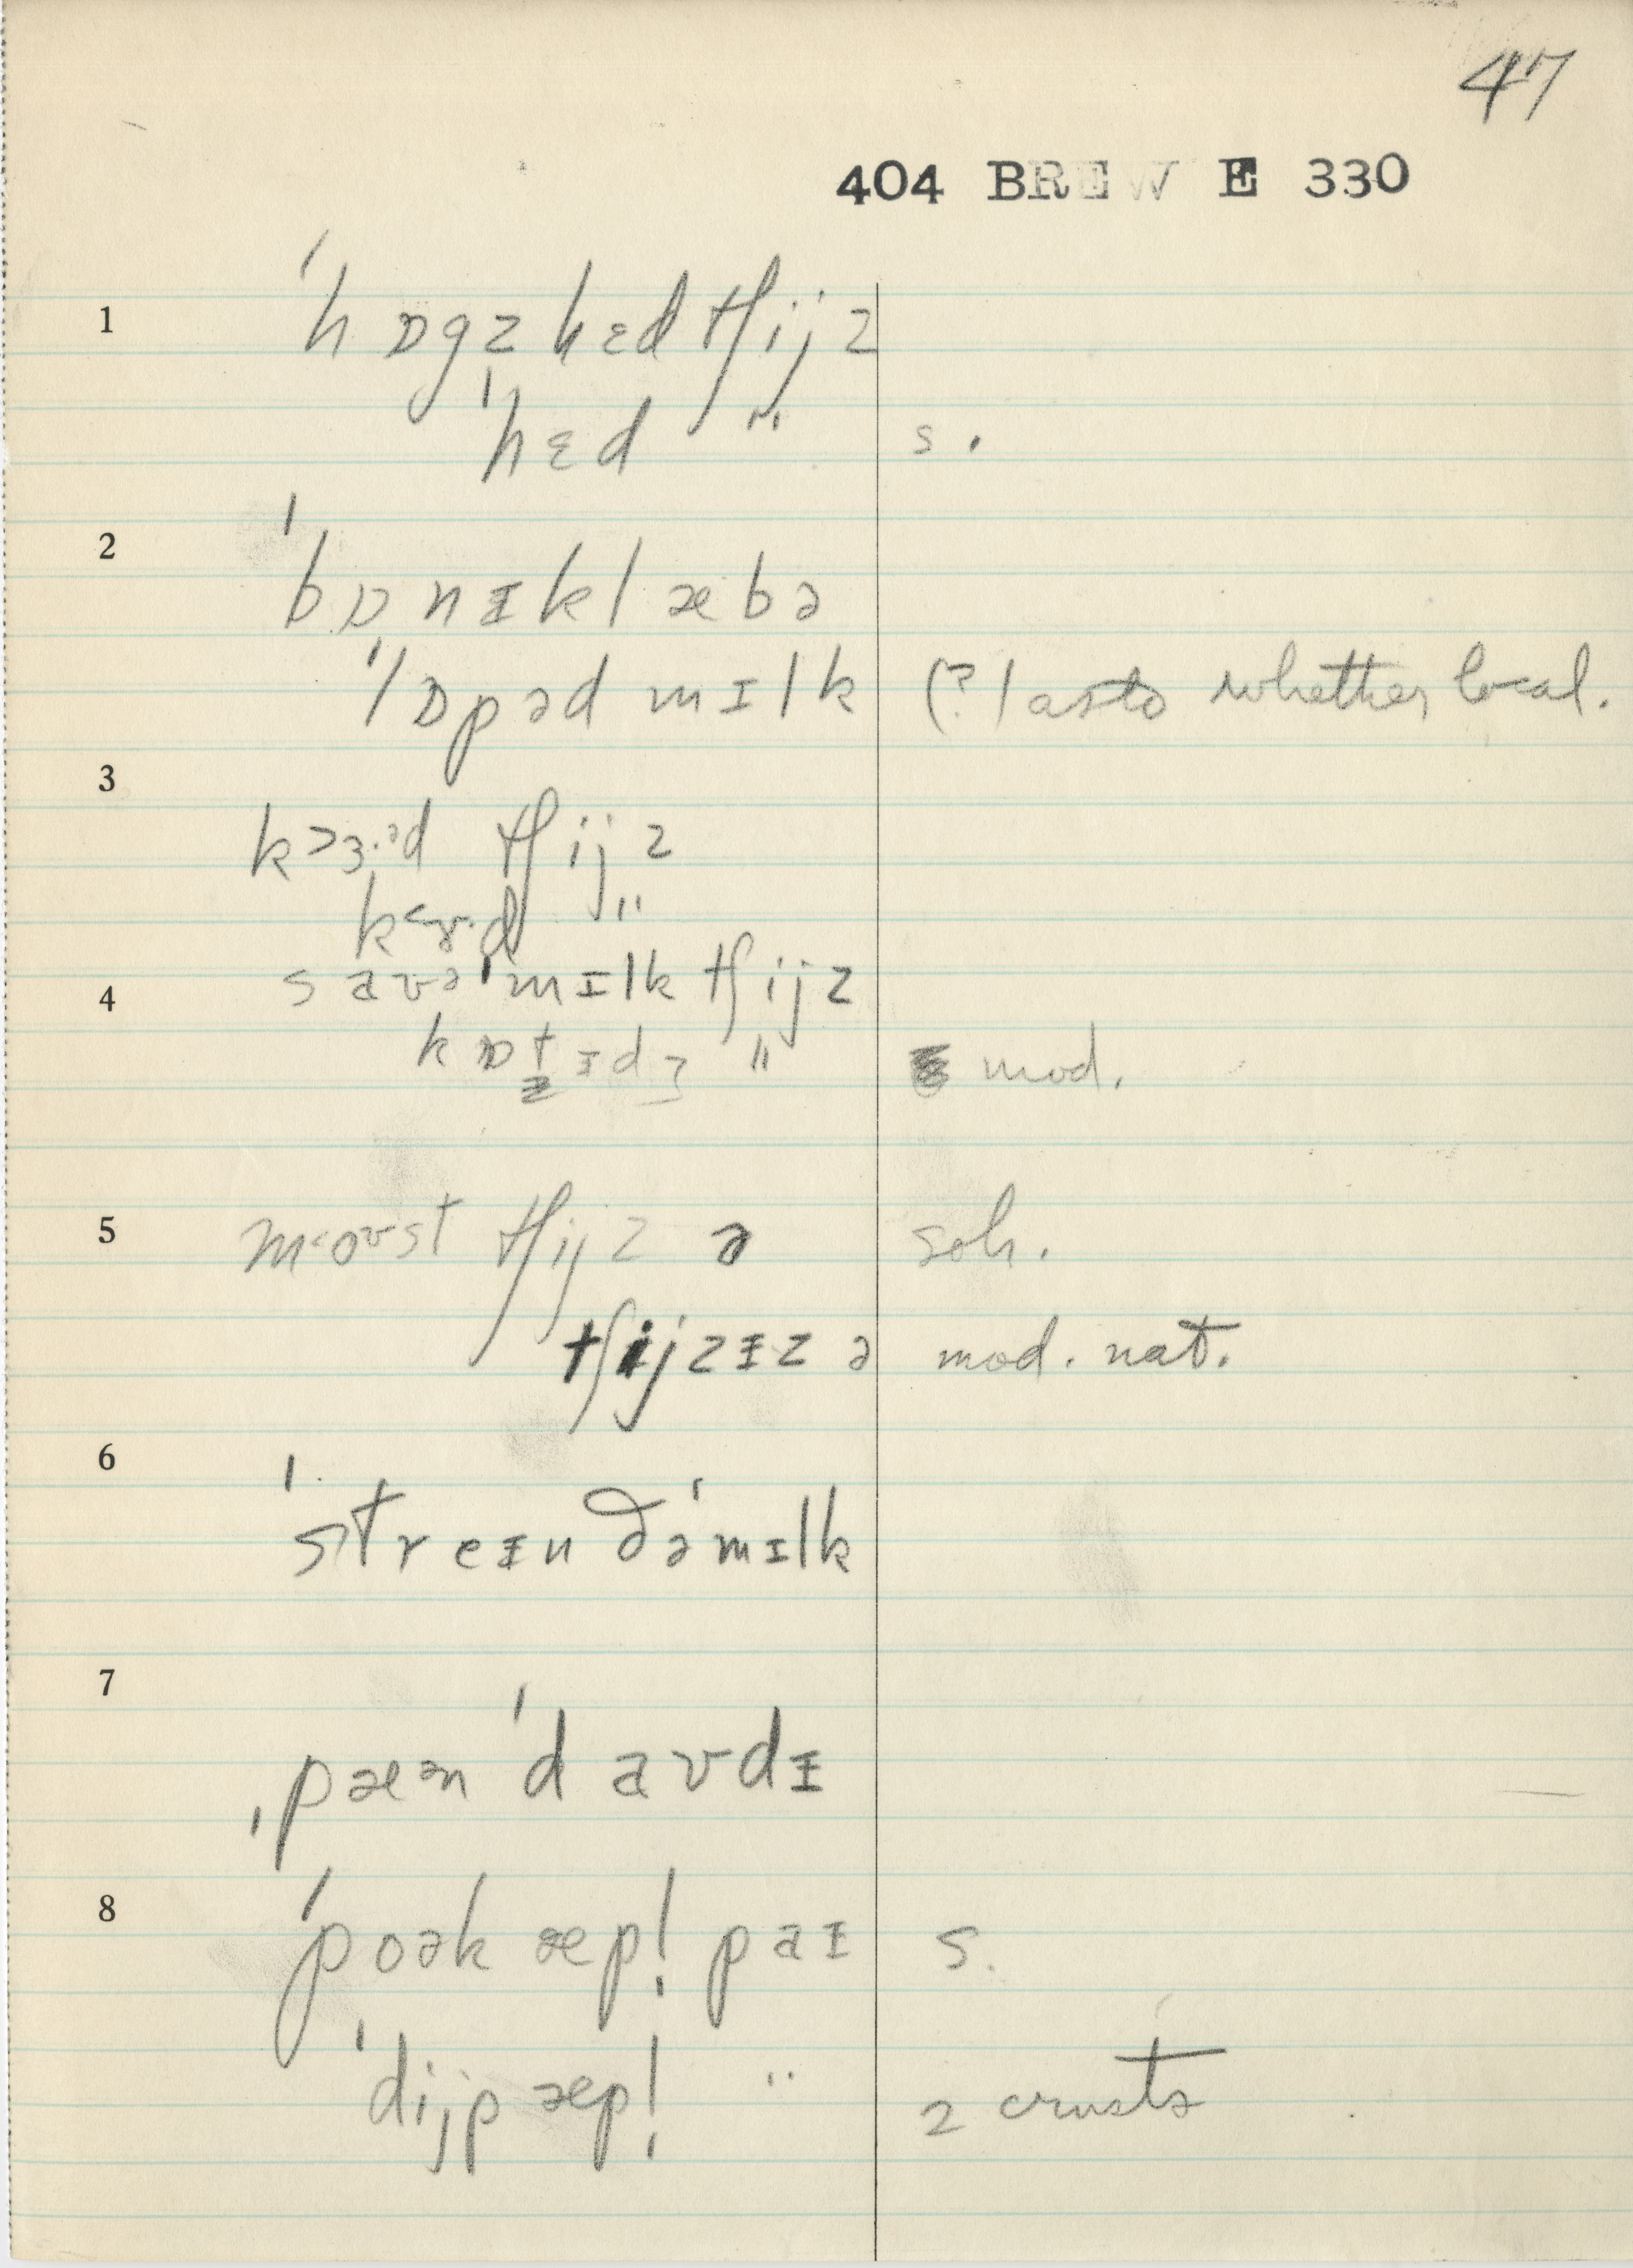 47
404 BREW E 330
1 ˈhɒgz hɛd tʃijz
ˈhɛd " s.
2 ˈbɒnɪklæbə
ˈlɒpəd mɪlk (?) as to whether local.
3 k>ɜ·ᵊd tʃijz
k<ɤ·d "
4 saʊəˈmɪlk tʃijz
kɒt̬ɪdʒ " mod.
5 m<oʊst tʃijz ə soh.
tʃijzɪz ə mod. nat.
6 ˈstreɪn ðəˈmɪlk
7 ˌpæᵊnˈdaʊdɪ
8 ˈpoək æpl̩ paɪ s.
ˈdijp æpl̩ " 2 crusts